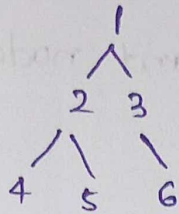 1
2 3
4 5 6